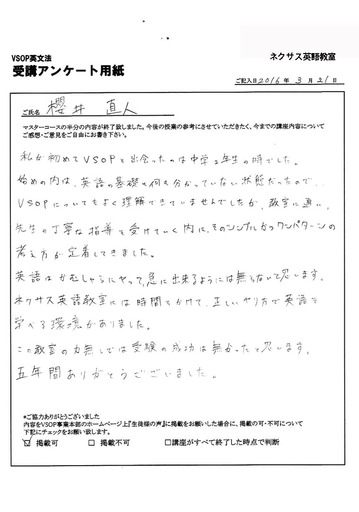 VSOP英文法
受講アンケート用紙
ネクサス英語教室
ご記入日2016年 3月 21日
ご氏名 櫻井 直人
マスターコースの半分の内容が終了しました。今後の授業の参考にさせていただきたく、今までの講座内容について
ご感想・ご意見をご自由にお書き下さい。
私が初めてVSOPと出会ったのは中学2年生の時でした。
始めの内は、英語の基礎も何も分かっていない状態だったので
VSOPについてもよく理解できていませんでしたが、教室に通い、
先生の丁寧な指導を受けていく内に、そのシンプルかつワンパターンの
考え方が定着してきました。
英語はがむしゃらにやって、急に出来るようには無らないと思います。
ネクサス英語教室には時間をかけて、正しいやり方で英語を
学べる環境がありました。
この教室の力無しでは受験の成功は無かったと思います。
五年間ありがとうございました。
*ご協力ありがとうございました
内容をVSOP事業本部のホームページ上『生徒様の声』に掲載をお願いした場合に、掲載の可・不可について
下記にチェックをお願い致します。
☑ 掲載可 □ 掲載不可 □講座がすべて終了した時点で判断